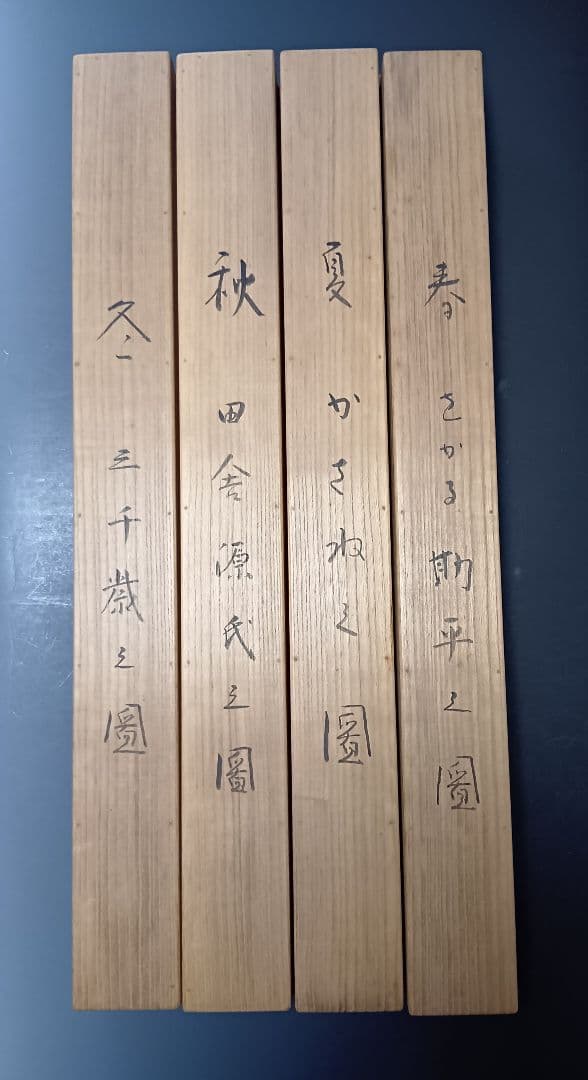 春 をかる勘平之圖
夏 かさね之圖
秋 田舎源氏之圖
冬 三千歳之圖